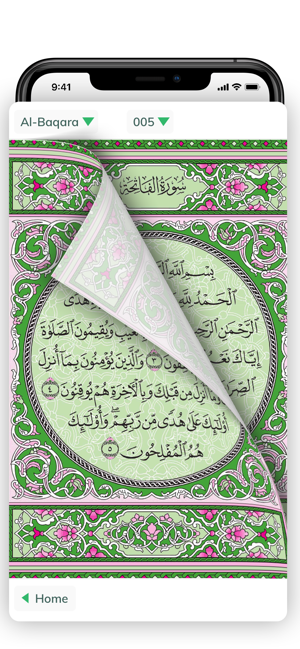 9:41
Al-Baqara
005
سورة الفاتحة
بِسْمِ اللَّهِ
الْحَمْدُ لِلَّهِ هُدًى
الرَّحْمَٰنِ الرَّحِيمِ وَيُقِيمُونَ الصَّلَاةَ
إِيَّاكَ نَعْبُدُ ٣ وَالَّذِينَ يُؤْمِنُونَ بِمَا أُنْزِلَ
أُنْزِلَ مِنْ قَبْلِكَ وَبِالْآخِرَةِ هُمْ يُوقِنُونَ ٤
أُولَٰئِكَ عَلَىٰ هُدًى مِنْ رَبِّهِمْ ۖ وَأُولَٰئِكَ
هُمُ الْمُفْلِحُونَ ٥
Home